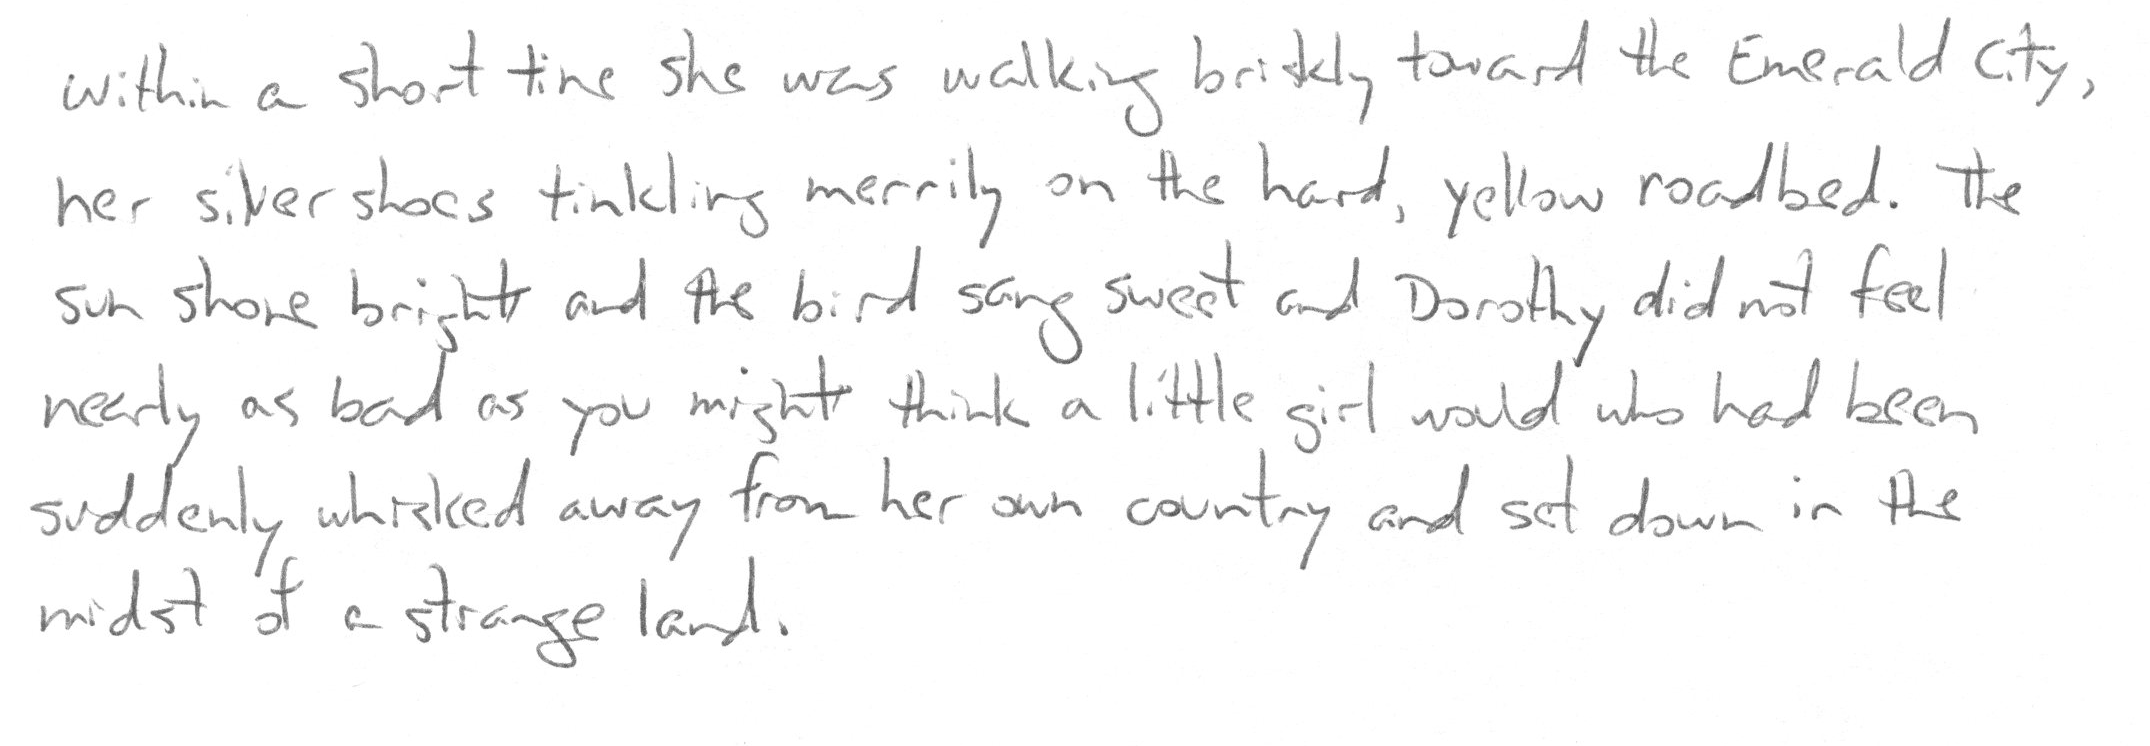 within a short time she was walking briskly toward the Emerald City,
her silver shoes tinkling merrily on the hard, yellow roadbed. The
sun shone bright and the bird sang sweet and Dorothy did not feel
nearly as bad as you might think a little girl would who had been
suddenly whisked away from her own country and set down in the
midst of a strange land.